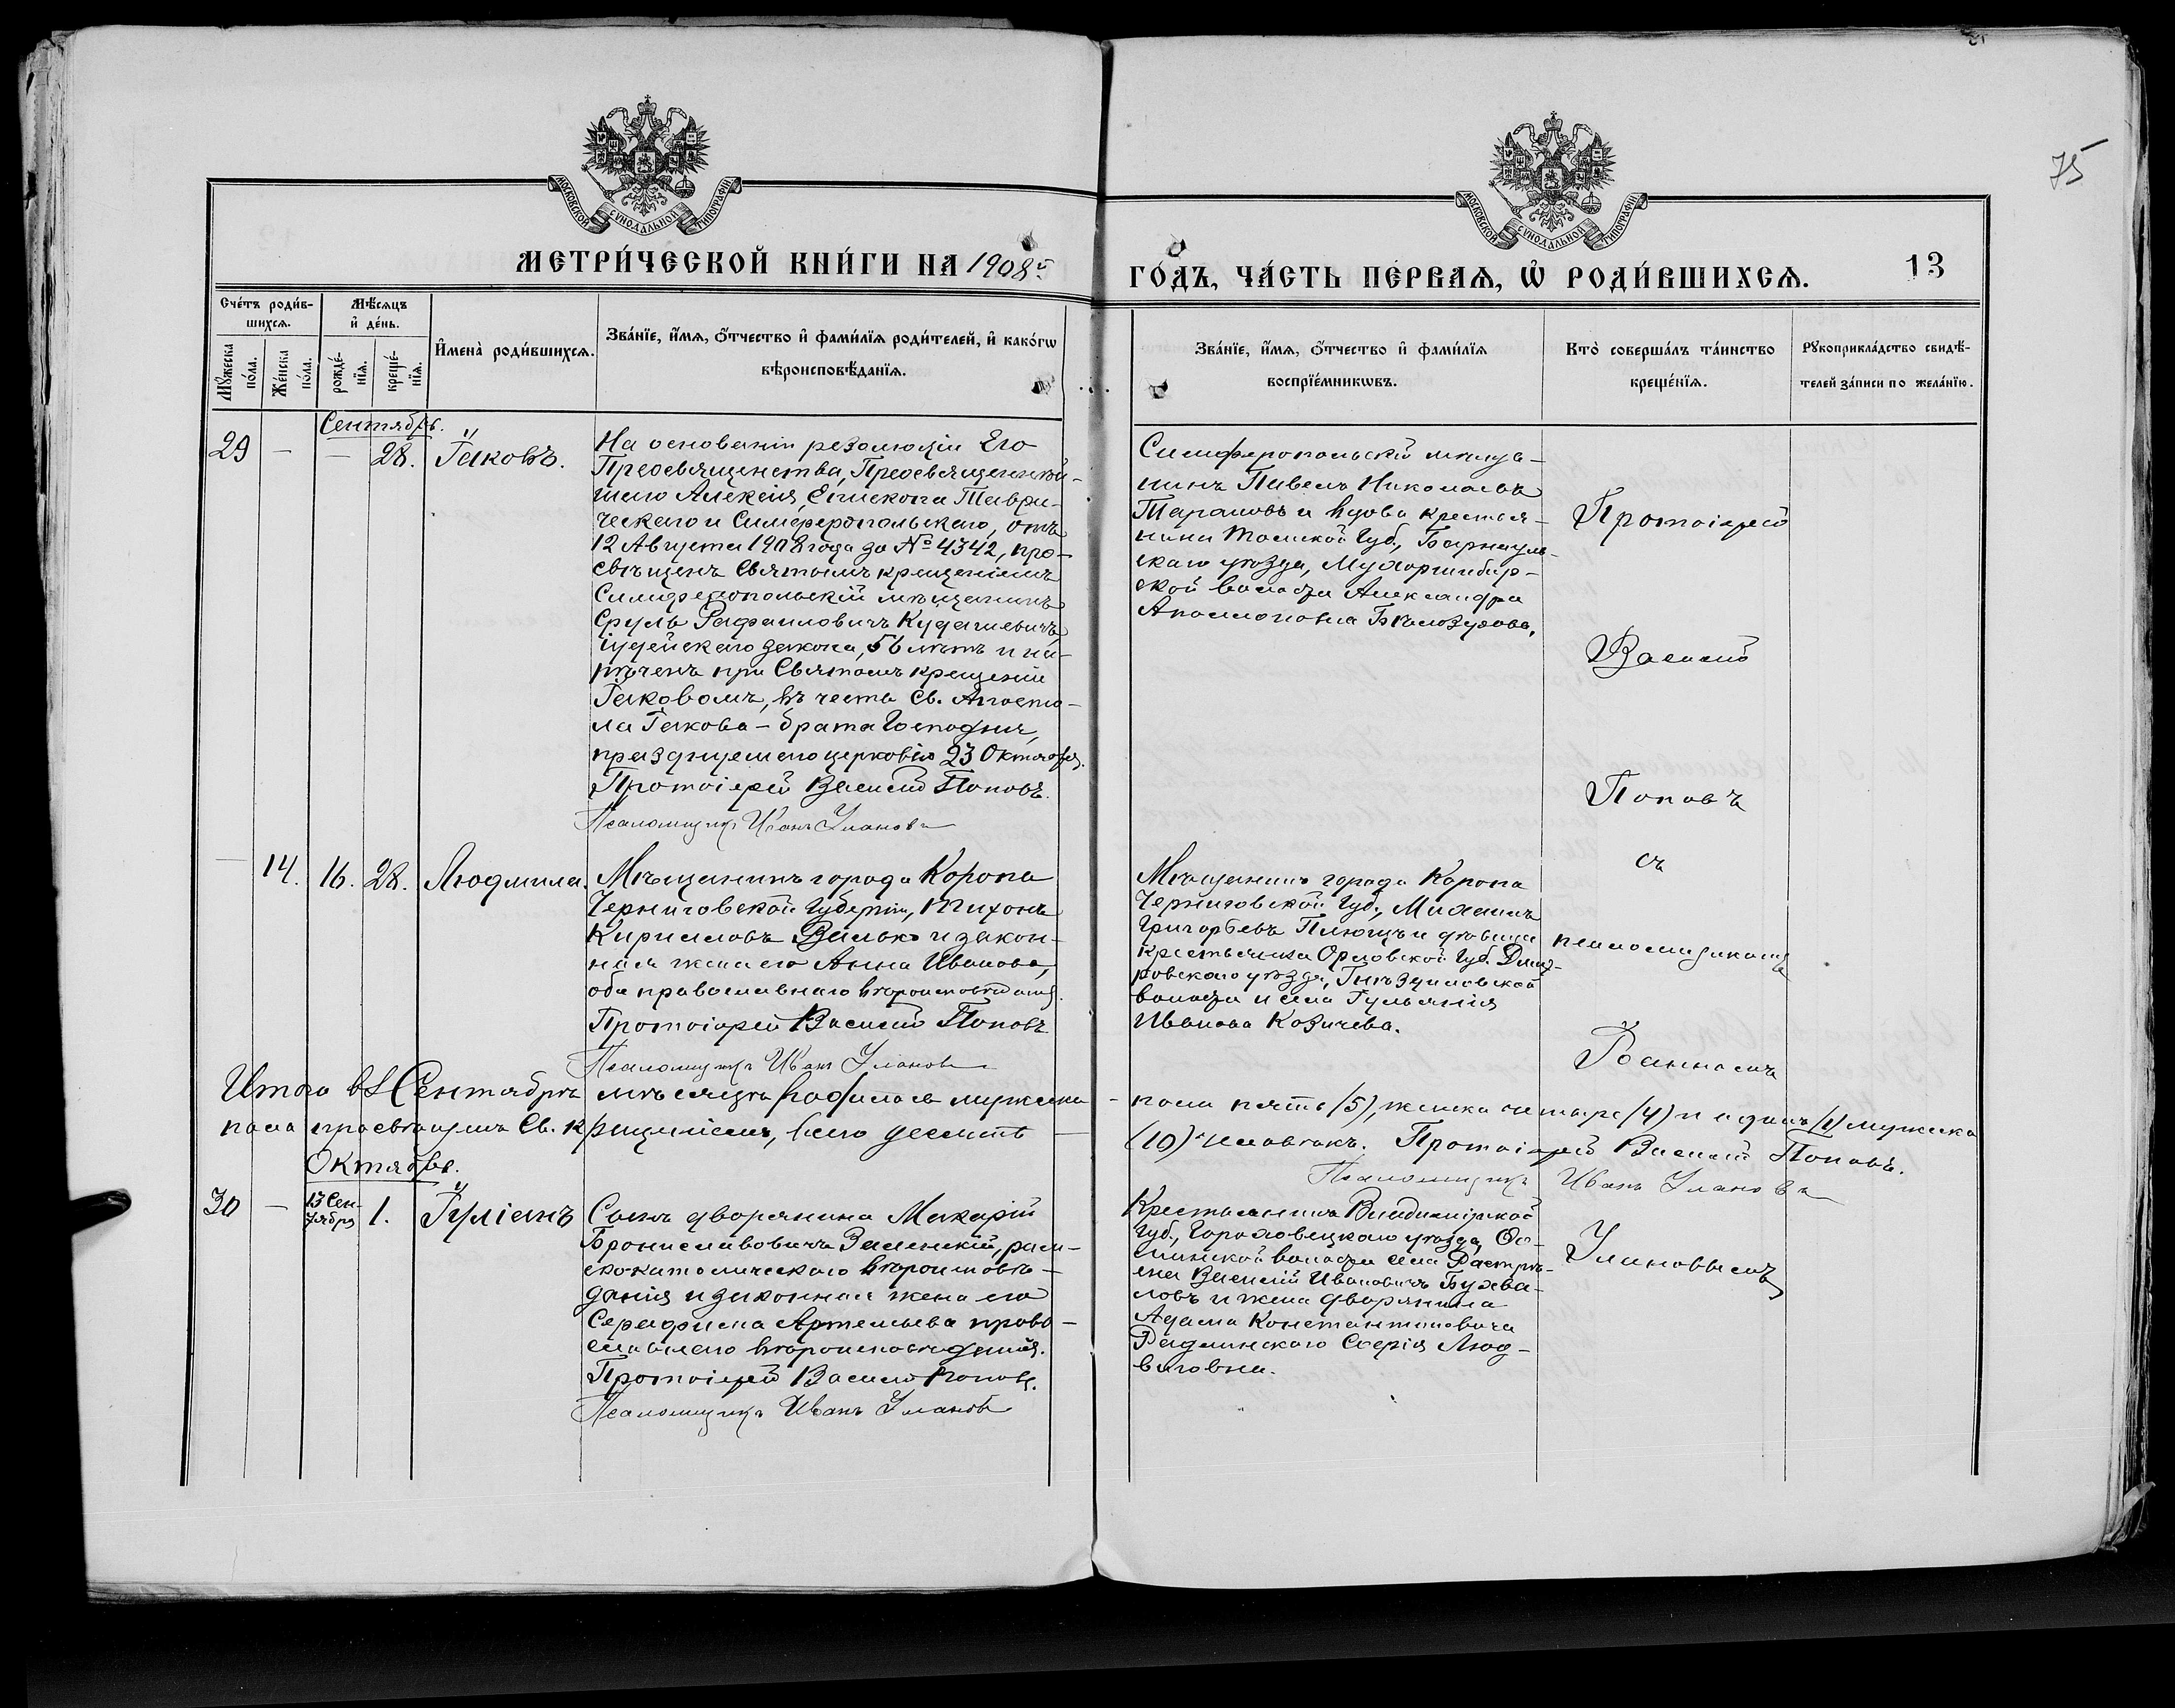 75
МОСКОВСКОЙ СѴНОДАЛЬНОЙ ТИПОГРАФІИ
МОСКОВСКОЙ СѴНОДАЛЬНОЙ ТИПОГРАФІИ
МЕТРИ́ЧЕСКОЙ КНИ́ГИ НА 1908й
ГО́ДЪ, ЧА́СТЬ ПЕ́РВАѦ, Ѡ҆ РОДИ́ВШИХСѦ.
13
Сче́тъ роди́в-
шихсѧ.
Мꙋ́жеска по́ла.
Же́нска по́ла.
Мѣ́сѧцъ
и҆ де́нь.
рожде́-
нїѧ.
креще́-
нїѧ.
И҆мена̀ роди́вшихсѧ.
Зва́нїе, и҆́мѧ, ѻ҆́тчество и҆ фами́лїѧ роди́телей, и҆ како́гѡ
вѣроисповѣ́данїѧ.
Зва́нїе, и҆́мѧ, ѻ҆́тчество и҆ фами́лїѧ
воспрїе́мникѡвъ.
Кто̀ соверша́лъ та́инство
креще́нїѧ.
Рꙋкоприкла́дство свидѣ́-
телей за́писи по жела́нїю.
Сентябрь.
29 — — 28. Іаковъ.
На основаніи резолюціи Его
Преосвященства, Преосвященнѣй-
шаго Алексія, Епископа Таври-
ческаго и Симферопольскаго, отъ
12 Августа 1908 года за № 4342, про-
свѣщенъ Святымъ крещеніемъ
Симферопольскій мѣщанинъ
Сруль Рафаиловичъ Кудашевичъ,
іудейскаго закона, 56 лѣтъ и на-
рѣченъ при Святомъ крещеніи
Іаковомъ, въ честь Св. Апосто-
ла Іакова – брата Господня,
празднуемаго церковію 23 Октября.
Протоіерей Василій Поповъ.
Псаломщикъ Иванъ Улановъ
Симферопольскій мѣща-
нинъ Павелъ Николаевъ
Тарановъ и вдова крестья-
нина Томской Губ., Барнауль-
скаго уѣзда,
ской волости Александра
Аполлоновна Бѣлозурова.
Протоіерей
Василій
Поповъ
съ
псаломщикомъ
Іоанномъ
Улановымъ
— 14. 16. 28. Людмила.
Мѣщанинъ города Коропа
Черниговской Губерніи, Тихонъ
Кирилловъ Валько и закон-
ная жена его Анна Иванова,
оба православнаго вѣроисповѣданія.
Протоіерей Василій Поповъ
Псаломщикъ Иванъ Улановъ
Мѣщанинъ города Коропа
Черниговской Губ., Михаилъ
Григорьевъ Плющъ и дѣвица
крестьянка Орловской Губ. Дмит-
ровскаго уѣзда, Гнѣздиловской
волости и села Гульянія
Иванова Козичева.
Итого въ Сентябрѣ мѣсяцѣ родилось мужска
пола пять (5), женска четыре (4) и одинъ (1) мужска
пола просвѣщенъ Св. крещеніемъ, всего десять —
(10) человѣкъ. Протоіерей Василій Поповъ.
Псаломщикъ Иванъ Улановъ
Октябрь.
30 — 13 Сен-
тября 1. Іуліанъ
Сынъ дворянина Макарій
Брониславовичъ Заленскій, рим-
ско-католическаго вѣроисповѣ-
данія и законная жена его
Серафима Артемьева право-
славнаго вѣроисповѣданія.
Протоіерей Василій Поповъ.
Псаломщикъ Иванъ Улановъ
Крестьянинъ Владимірской
Губ., Гороховецкаго уѣзда,
волости села Растри-
ена Василій Ивановичъ Бухва-
ловъ и жена дворянина
Адама Константиновича
Радлинскаго Софія Люд-
виговна.